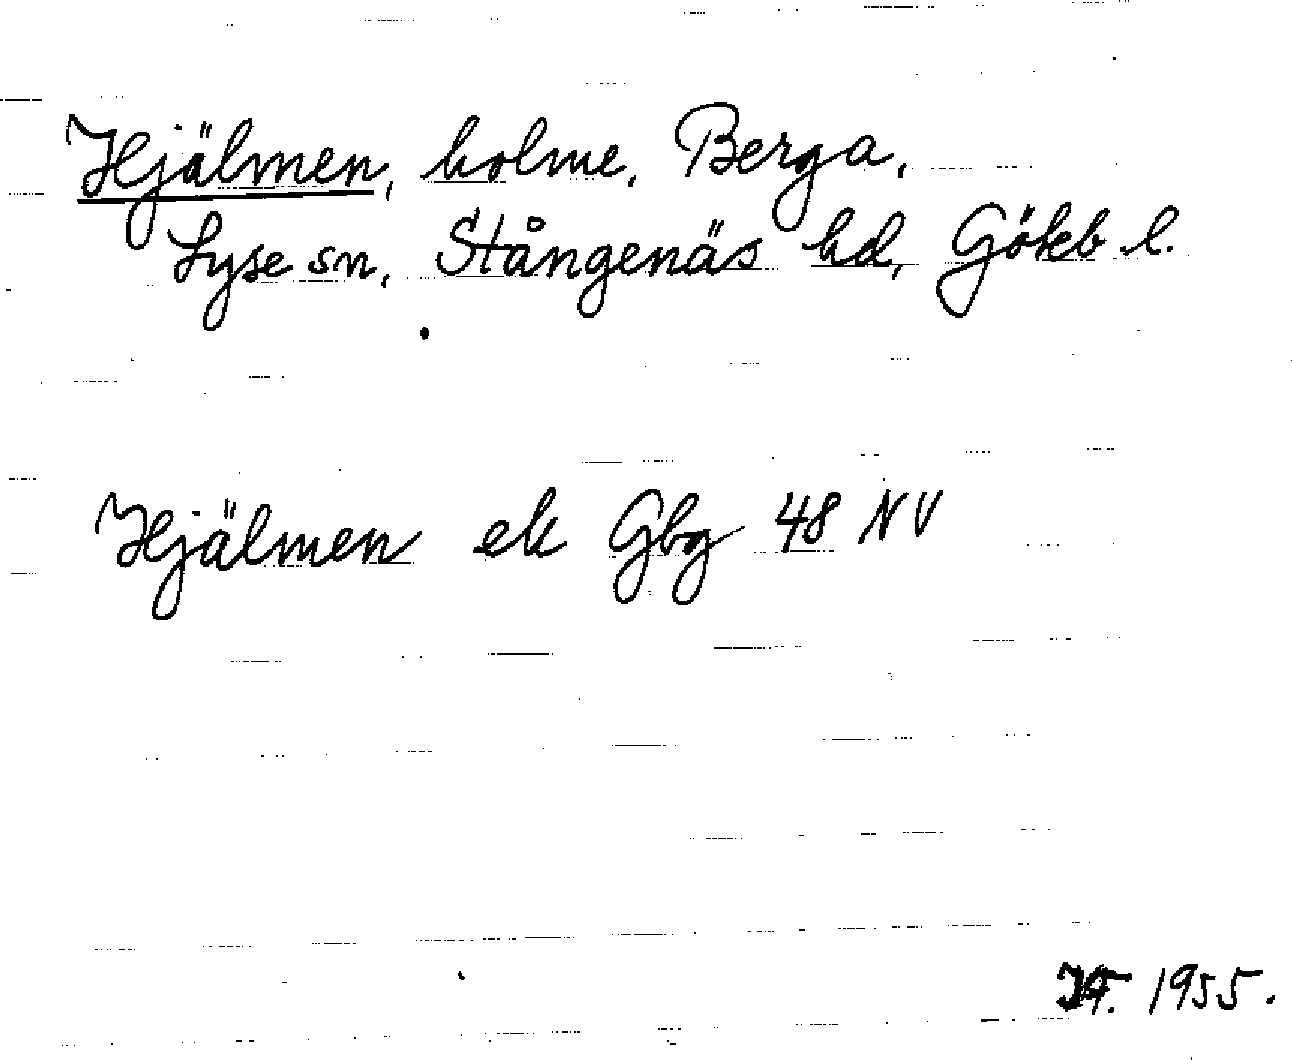 Hjälmen, holme, Berga,
Lyse sn, Stångenäs hd, Gökb l.
Hjälmen ek Gbg 48 NV
1955.